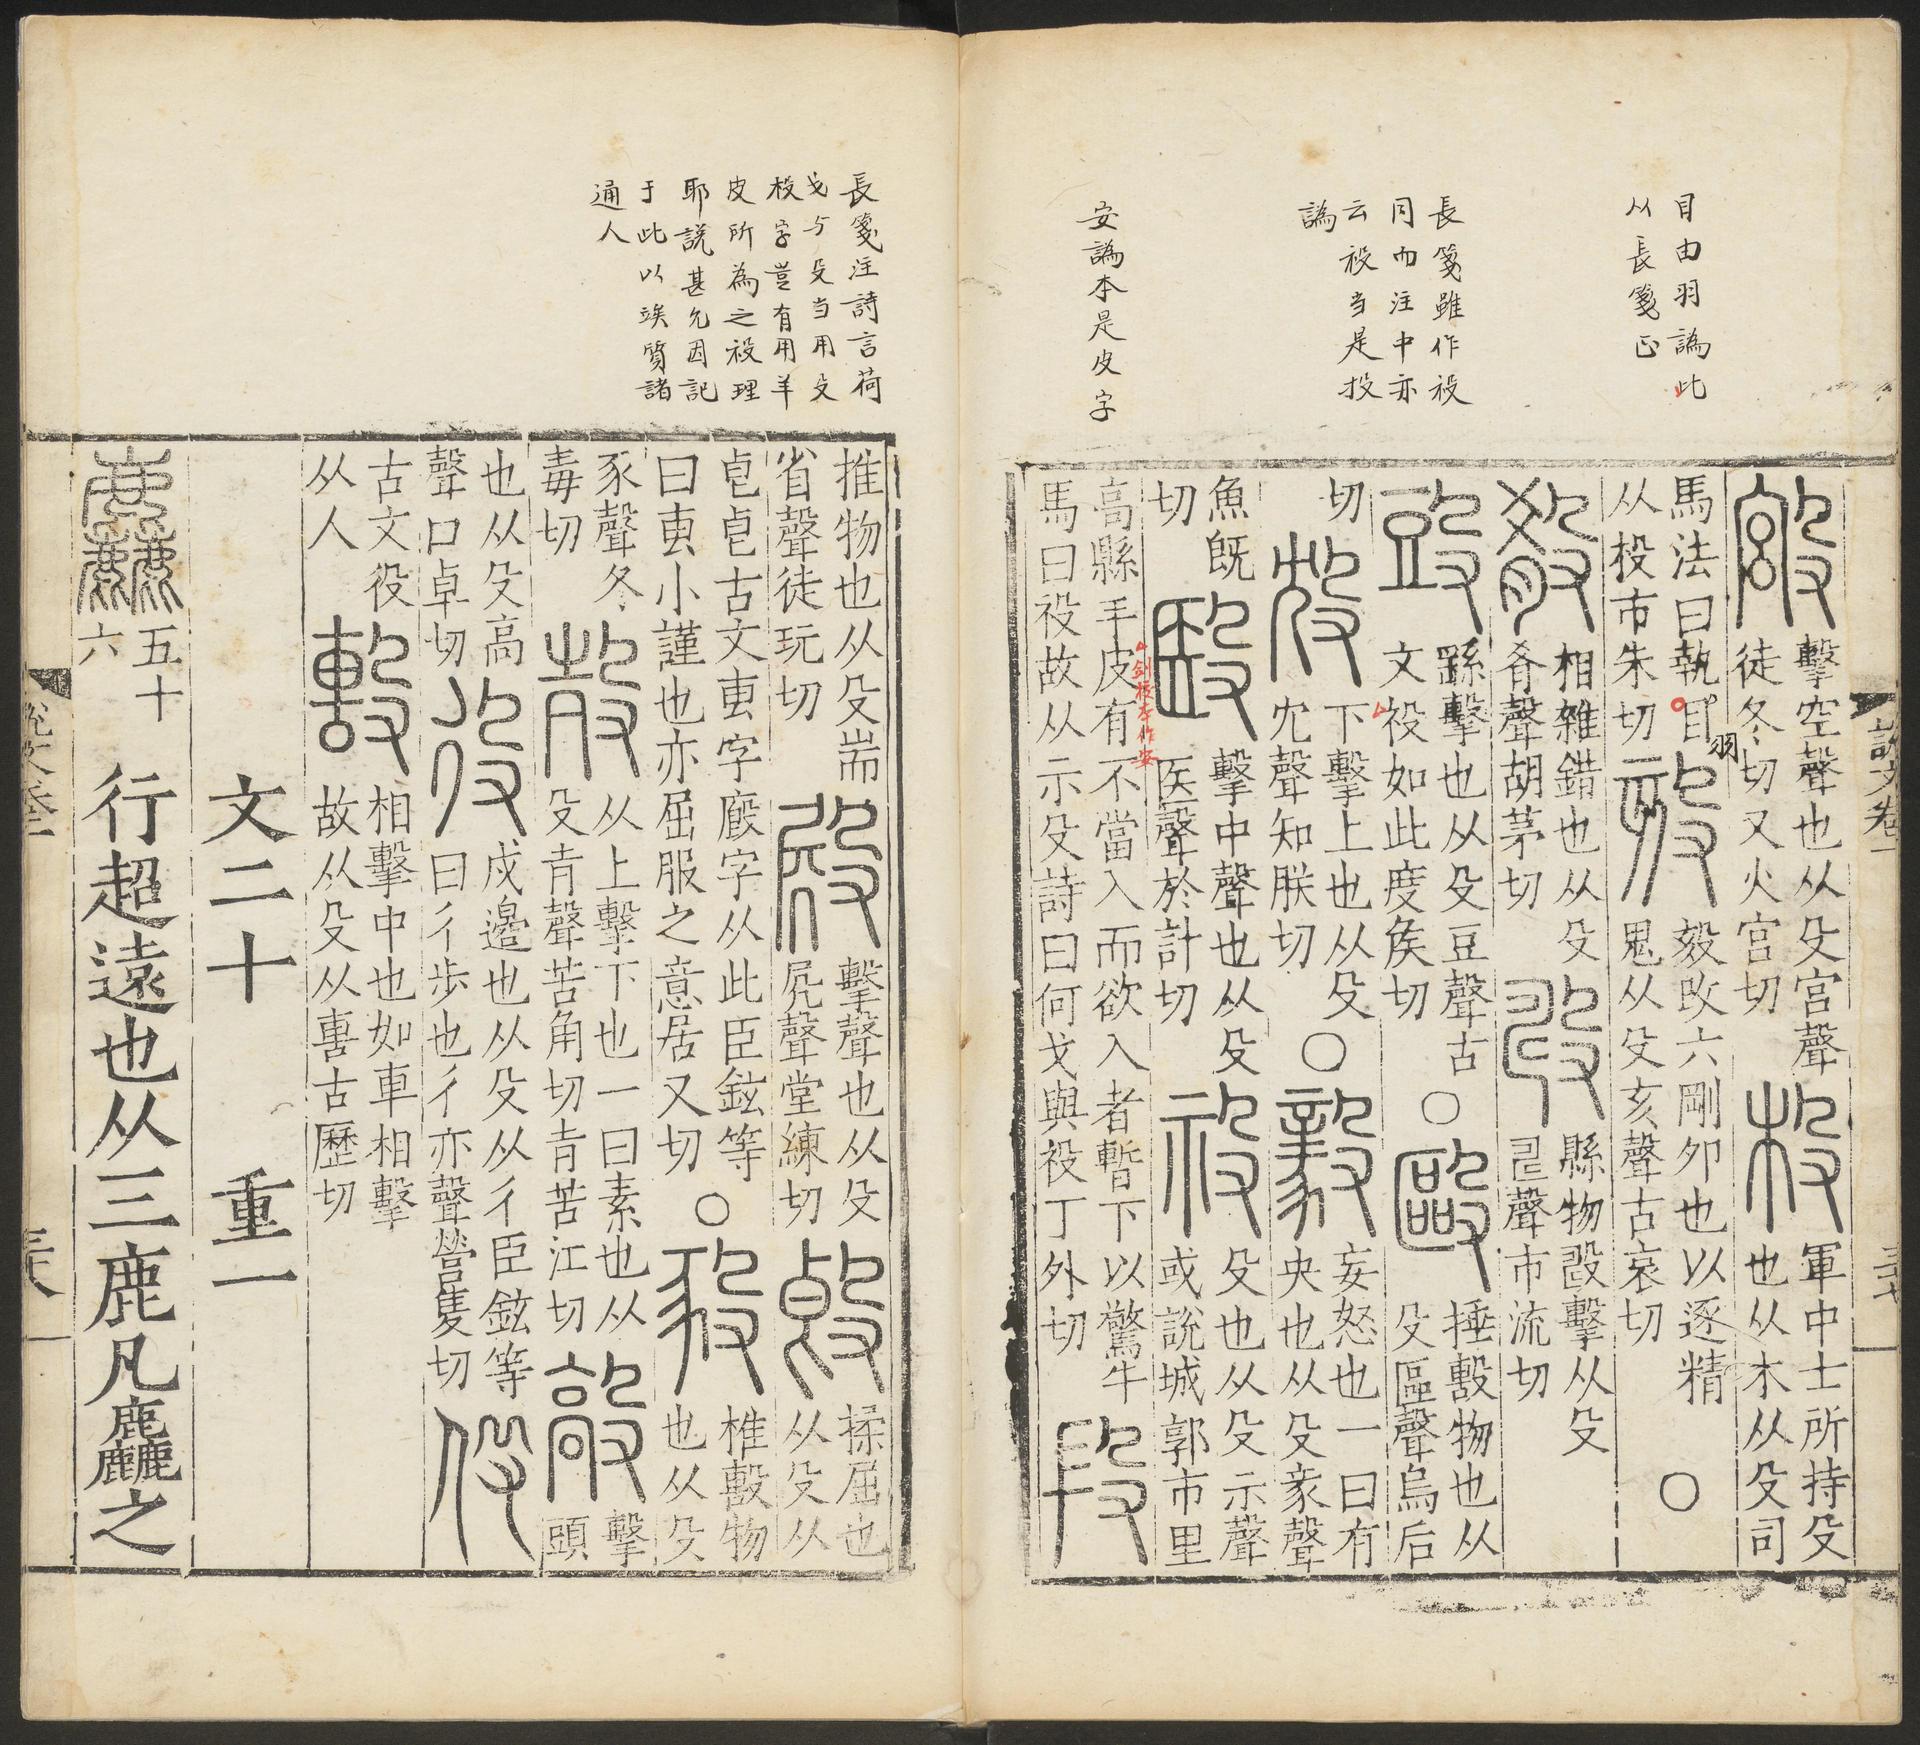 目由羽譌此
从長箋正
長箋雖作祋
同而注中亦
云祋当是投
譌
安譌本是皮字
說文卷一
三十七
擊空聲也从殳宮聲
徒冬切又火宮切
杸
軍中士所持殳
也从木从殳司
馬法曰執目羽
从投市朱切
毅攺六剛卯也以逐精
鬼从殳亥聲古哀切
○
殽
相雜錯也从殳
肴聲胡茅切
縣物㱾擊从殳
聲市流切
繇擊也从殳豆聲古
文祋如此度矦切
○
毆
捶毄物也从
殳區聲烏后
切
下擊上也从殳
冘聲知朕切
○
毅
妄怒也一曰有
央也从殳豙聲
魚旣
切
殹
擊中聲也从殳
医聲於計切
祋
殳也从殳示聲
或說城郭市里
高縣手皮有不當入而欲入者暫下以驚牛
馬曰祋故从示殳詩曰何戈與祋丁外切
段
長箋注詩言荷
戈与殳当用殳
杸字豈有用羊
皮所為之祋理
耶說甚允因記
于此以竢質諸
通人
推物也从殳耑
省聲徒玩切
擊聲也从殳
聲堂練切
揉屈也
从殳从
皀皀古文叀字廄字从此臣鉉等
曰叀小謹也亦屈服之意居又切
○
椎毄物
也从殳
豕聲冬
毒切
从上擊下也一曰素也从
殳聲苦角切苦江切
毃
擊
頭
也从殳高
聲口卓切
役
戍邉也从殳从彳臣鉉等
曰彳步也彳亦聲營隻切
伇
古文役
从人
毄
相擊中也如車相擊
故从殳从軎古歷切
文二十 重一
麤
五十
六
行超遠也从三鹿凡麤之
說文卷一
三十八